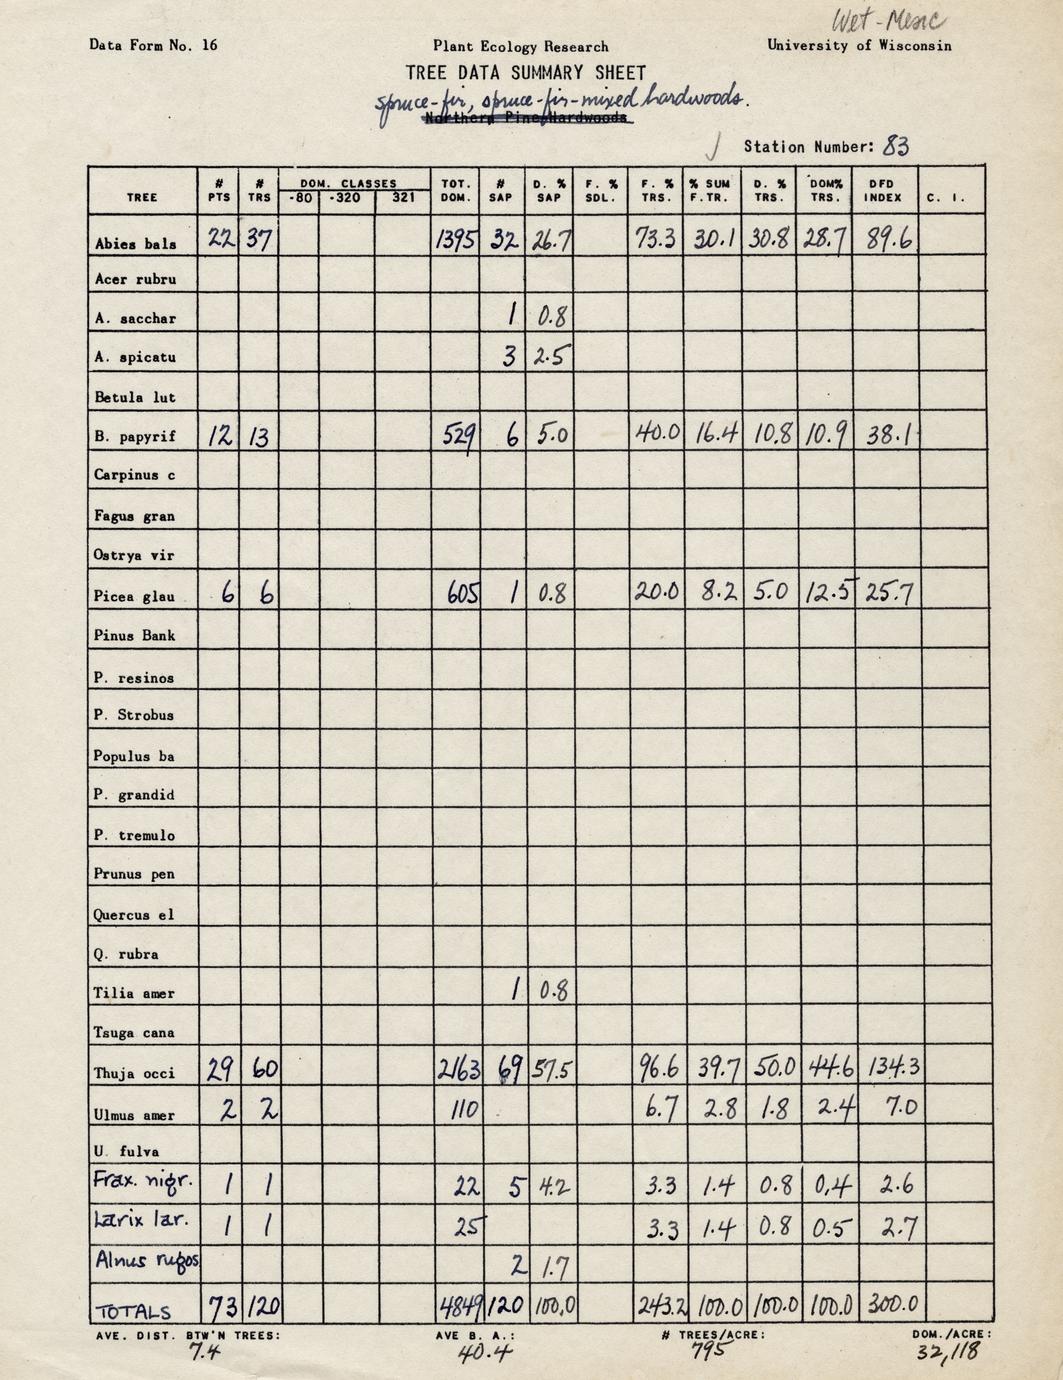 Wet-Mesic
Data Form No. 16 Plant Ecology Research University of Wisconsin
TREE DATA SUMMARY SHEET
spruce-fir, spruce-fir-mixed hardwoods.
Northern Pine Hardwoods
Station Number: 83
TREE # PTS # TRS DOM. CLASSES -80 -320 321 TOT. DOM. # SAP D. % SAP F. % SDL. F. % TRS. % SUM F.TR. D. % TRS. DOM% TRS. DFD INDEX C. I.
Abies bals 22 37 1395 32 26.7 73.3 30.1 30.8 28.7 89.6
Acer rubru
A. sacchar 1 0.8
A. spicatu 3 2.5
Betula lut
B. papyrif 12 13 529 6 5.0 40.0 16.4 10.8 10.9 38.1
Carpinus c
Fagus gran
Ostrya vir
Picea glau 6 6 605 1 0.8 20.0 8.2 5.0 12.5 25.7
Pinus Bank
P. resinos
P. Strobus
Populus ba
P. grandid
P. tremulo
Prunus pen
Quercus el
Q. rubra
Tilia amer 1 0.8
Tsuga cana
Thuja occi 29 60 2163 69 57.5 96.6 39.7 50.0 44.6 134.3
Ulmus amer 2 2 110 6.7 2.8 1.8 2.4 7.0
U. fulva
Frax. nigr. 1 1 22 5 4.2 3.3 1.4 0.8 0.4 2.6
Larix lar. 1 1 25 3.3 1.4 0.8 0.5 2.7
Alnus rugos 2 1.7
TOTALS 73 120 4849 120 100.0 243.2 100.0 100.0 100.0 300.0
AVE. DIST. BTW'N TREES: AVE B. A.: # TREES/ACRE: DOM./ACRE:
7.4 40.4 795 32,118